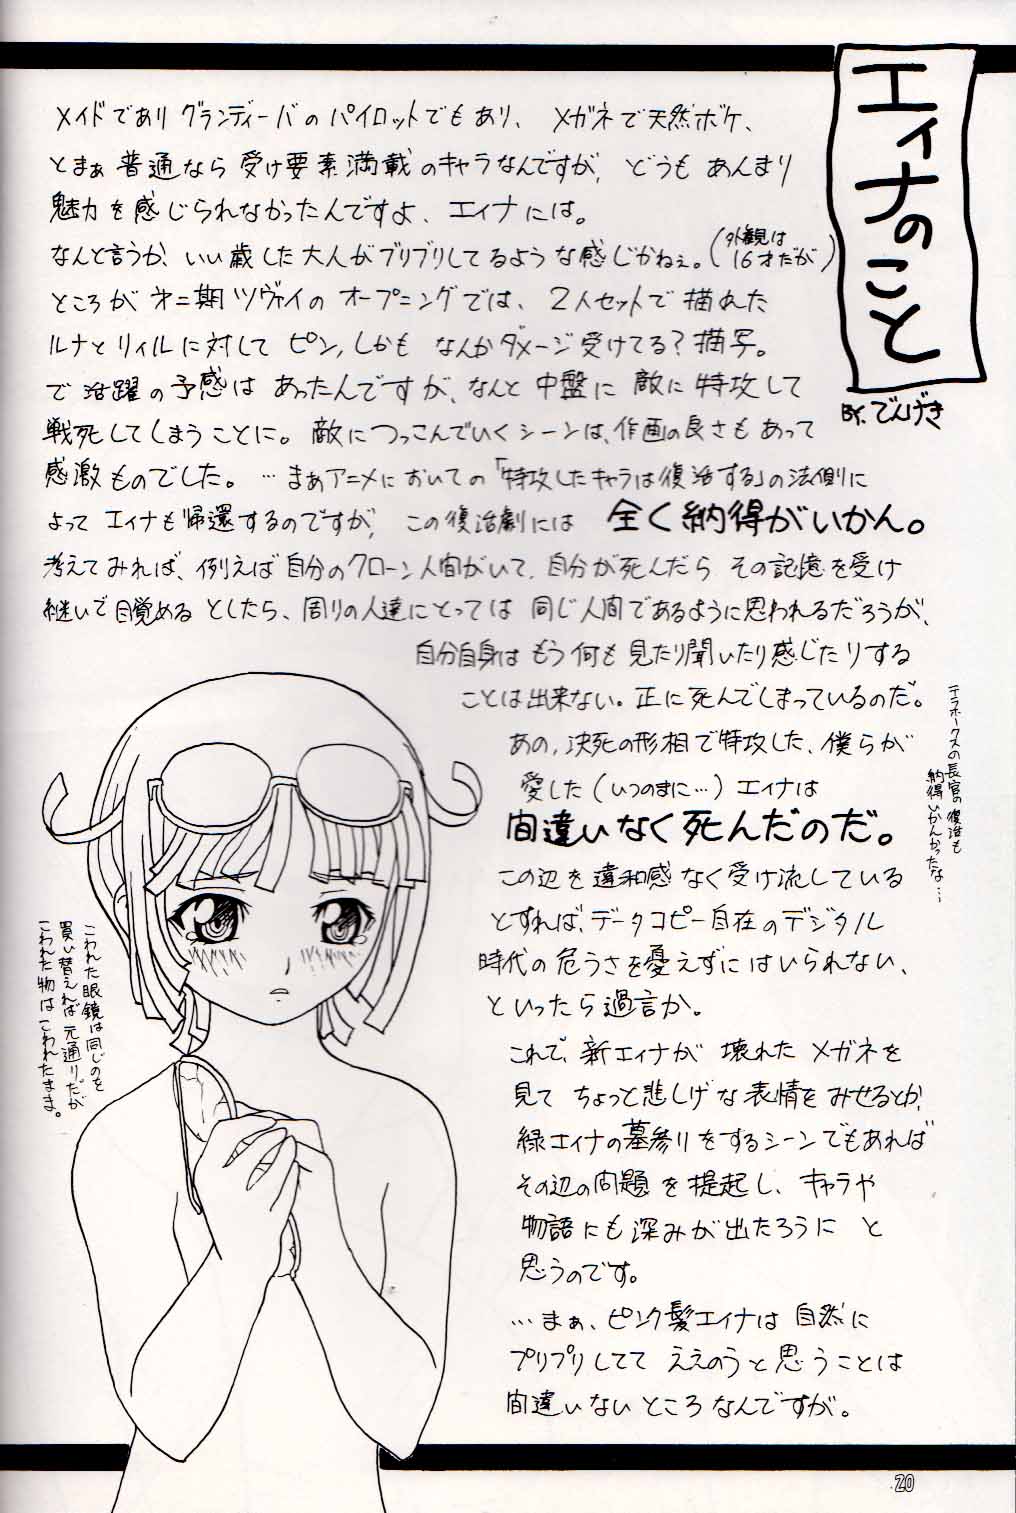 エィナのこと
BY.でんげき
メイドでありグランディーバのパイロットでもあり、メガネで天然ボケ、
とまぁ普通なら受け要素満載のキャラなんですが、どうもあんまり
魅力を感じられなかったんですよ、エィナには。
なんと言うか、いい歳した大人がブリブリしてるような感じかねぇ。(外観は16才だが)
ところが第二期ツヴァイのオープニングでは、2人セットで描れた
ルナとリィルに対してピン、しかもなんかダメージ受けてる?描写。
で活躍の予感はあったんですが、なんと中盤に敵に特攻して
戦死してしまうことに。敵につっこんでいくシーンは、作画の良さもあって
感激ものでした。…まぁアニメにおいての「特攻したキャラは復活する」の法側に
よってエィナも帰還するのですが、この復活劇には全く納得がいかん。
考えてみれば、例えば自分のクローン人間がいて、自分が死んだらその記憶を受け
継いで目覚めるとしたら、周りの人達にとっては同じ人間であるように思われるだろうが、
自分自身はもう何も見たり聞いたり感じたりする
ことは出来ない。正に死んでしまっているのだ。
あの、決死の形相で特攻した、僕らが
愛した(いつのまに…)エィナは
間違いなく死んだのだ。
この辺を違和感なく受け流している
とすれば、データコピー自在のデジタル
時代の危うさを憂えずにはいられない、
といったら過言か。
これで、新エィナが壊れたメガネを
見てちょっと悲しげな表情をみせるとか、
緑エィナの墓参りをするシーンでもあれば
その辺の問題を提起し、キャラや
物語にも深みが出たろうにと
思うのです。
…まぁ、ピンク髪エィナは自然に
プリプリしててええのうと思うことは
間違いないところなんですが。
テラホークスの長官の復活も
納得いかんかったな…
こわれた眼鏡は同じのを
買い替えれば元通りだが
こわれた物はこわれたまま。
20